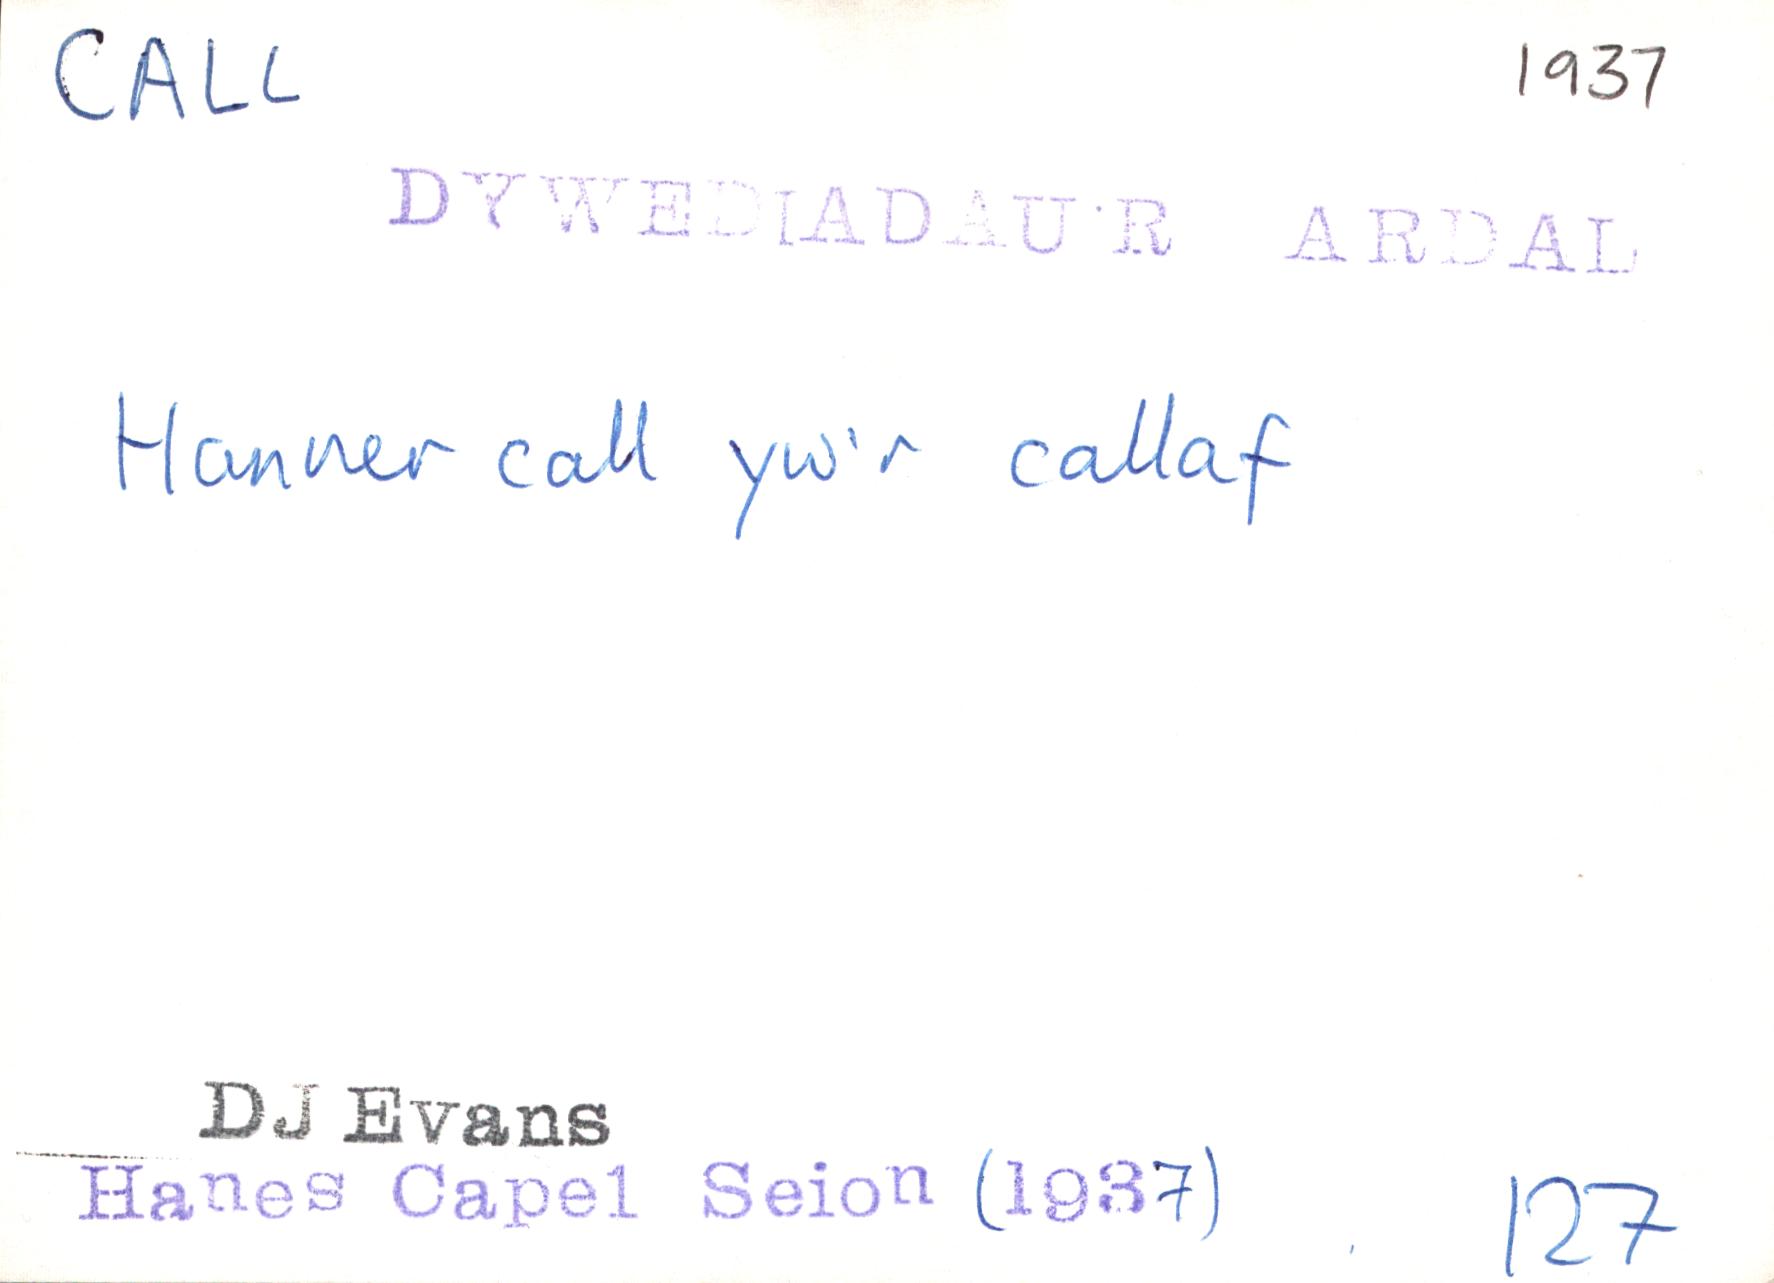 CALL 1937
DYWEDIADAU'R ARDAL
Hanner call yw'r callaf
DJ Evans
Hanes Capel Seion (1937) 127